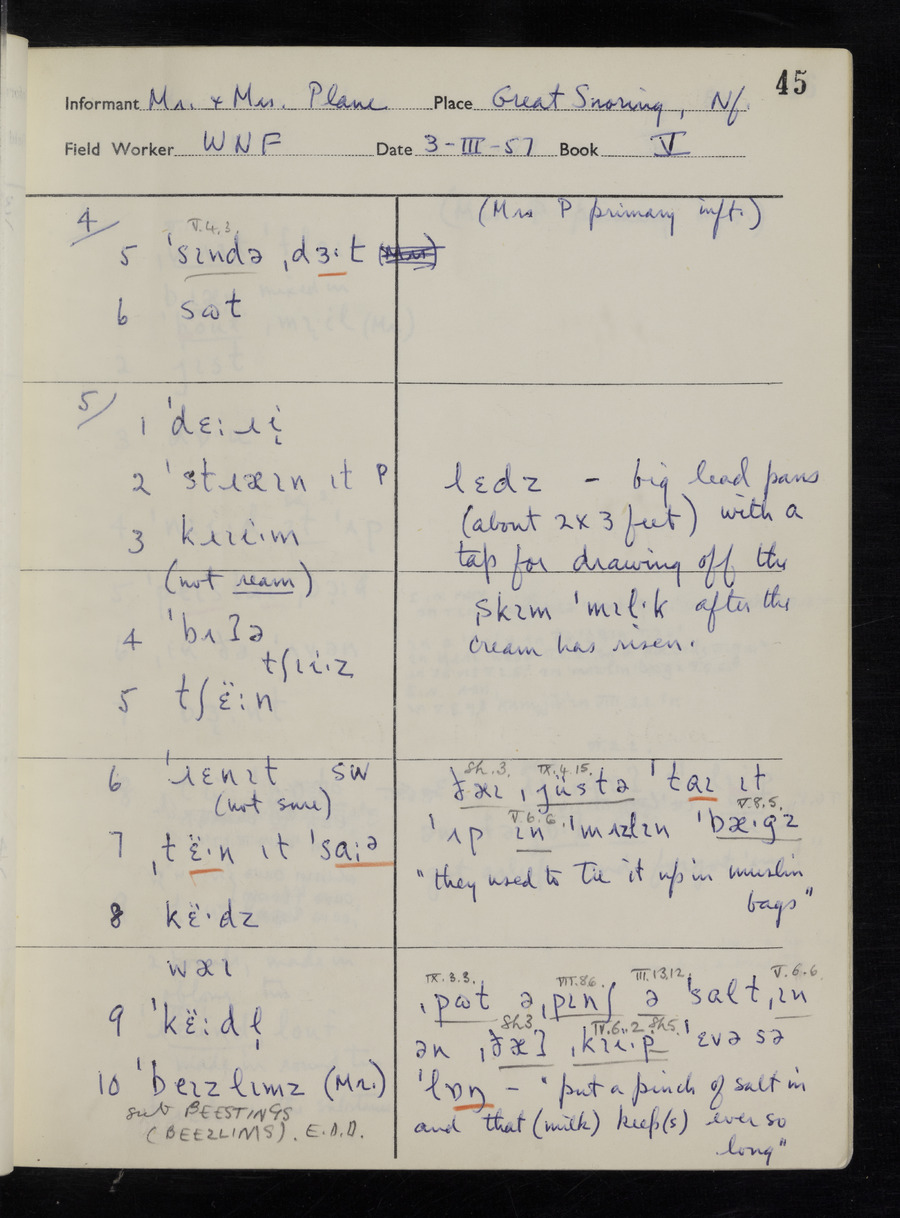 45
Informant Mr. + Mrs. Plane Place Great Snoring, Nf.
Field Worker WNF Date 3-III-57 Book V
4/
(Mrs P primary inft.)
V.4.3.
5 ˈsɪndə ˌdɜ·t
6 sɷt
5/
1 ˈdɛ:ɹi̞
2 ˈstɹæɪn ɪt P
3 kɹɪi·m
(not ream)
4 ˈbɹʌʔə
tʃɪi·z
5 tʃë:n
lɛdz – big lead pans
(about 2x3 feet) with a
tap for drawing off the
ˌskɪm ˈmɪl·k after the
cream has risen.
6 ˈɹɛnɪt SW
(not sure)
7 ˌtë·n ɪt ˈsaɪə
8 kë·dz
Sh.3. IX.4.15.
ðæɪ ˌjüstə ˈtaɪ ɪt
V.6.6. V.8.5.
ˈʌp ɪn ˈmɪzlɪn ˈbæ·gz
"they used to tie it up in muslin
bags"
wæɪ
9 ˈkë:dl̩
10 ˈbeɪzlɪmz (Mr.)
sub BEESTINGS
(BEEZLIMS). E.D.D.
IX.3.3. VII.8.6. III.13.12. V.6.6.
ˌpɷt ə ˌpɪnʃ ə ˈsalt ˌɪn
Sh3. IV.6.2 Sh5.
ən ˌðæʔ ˌkɪi·p ˈɛvə sə
ˈlɒŋ – "put a pinch of salt in
and that (milk) keep(s) ever so
long"